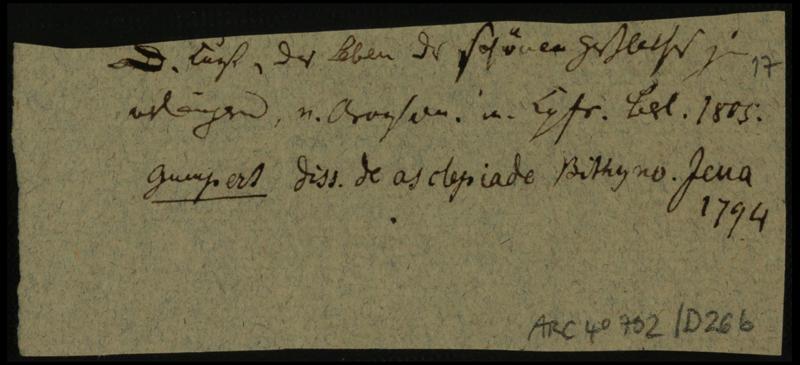 D. Kunst, das Leben des schönen Geschlechts zu
17
verlängern, v. Aronson. m. Kpfr. Berl. 1805.
Gumpert diss. de asclepiade Bithyno. Jena
1794
ARC 4° 792 /D26b